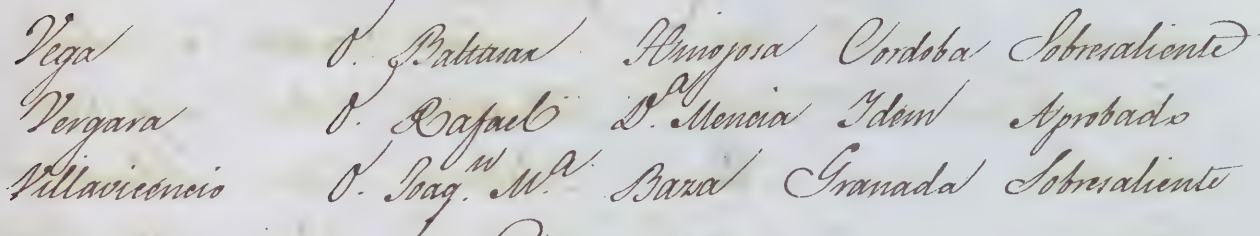 Vega D. Baltasar Hinojosa Cordoba Sobresaliente
Vergara D. Rafael Dª. Mencia Idem Aprobado
Villavicencio D. Joaqⁿ. Mª. Baza Granada Sobresaliente